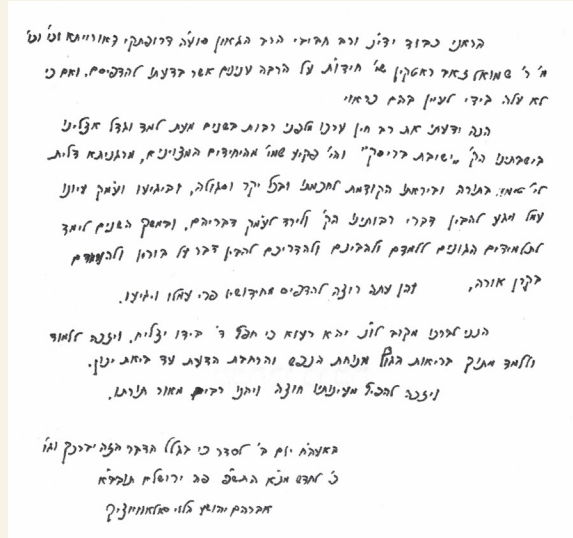 הראני כבוד ידי"נ ורב חביבי הרב הגאון סוע"ה דרופתקי דאורייתא וכו' וכו'
מ' ר' שמואל זאב ראטקין שי' חידו"ת על הרבה ענינים אשר בדעתו להדפיסם, ואם כי
לא עלה בידי לעיין בהם כראוי
הנה ידעתי את רב חין ערכו מלפני רבות בשנים מעת למד וגדל אצלינו
בישיבתינו הק' "ישיבת בריסק" והי' פקיע שמי' מהיחידים המצוינים, מרגניתא דלית
לי' טימי, בתורה וביראתו הקודמת לחכמתו ובכל יקר וסגולה, וביגיעו ועומק עיונו
עמל ויגע להבין דברי רבותינו הק' ולירד לעומק דבריהם, ובמשך השנים לימד
לתלמידים הגונים ללמדם ולהבינם ולהדריכם להבין דבר על בוריו ולהעמידם
בקרן אורה, והן עתה רוצה להדפיס מחידושיו פרי עמלו ויגיעו.
הנני לברכו מקרב לו"נ יהא רעוא כי חפץ ד' בידו יצליח, ויזכה ללמוד
וללמד מתוך בריאות הגוף מנוחת הנפש והרחבת הדעת עד ביאת ינון.
ויזכה להפיץ מעינותיו חוצה ויהנו רבים מאור תורתו.
באעה"ח יום ב' לסדר כי בגלל הדבר הזה יברכך וגו'
כ' לחדש מנ"א התש"פ פה ירושלם תובב"א
אברהם יהושע הלוי סאלאווייציק